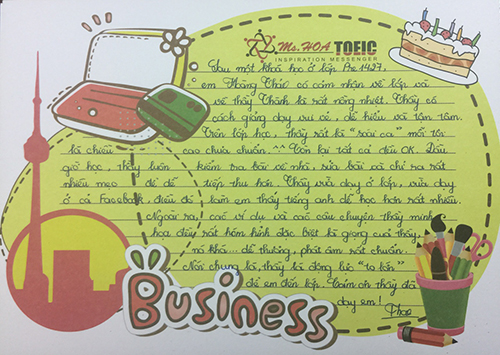 Ms. HOA TOEIC
INSPIRATION MESSENGER
Sau một khoá học ở lớp Pre 1427,
em Phương Thảo có cảm nhận về lớp và
về thầy Thành là rất nồng nhiệt. Thầy có
cách giảng dạy vui vẻ, dễ hiểu và tận tâm.
Trên lớp học, thầy rất là "soái ca" mỗi tội
là chiều cao chưa chuẩn. ^^ Còn lại tất cả đều OK. Đầu
giờ học, thầy luôn kiểm tra bài về nhà, sửa bài và chỉ ra rất
nhiều mẹo để dễ tiếp thu hơn. Thầy vừa dạy ở lớp, vừa dạy
ở cả Facebook điều đó làm em thấy tiếng anh dễ học hơn rất nhiều.
Ngoài ra, các ví dụ và các câu chuyện thầy minh
hoạ đều rất hóm hỉnh đặc biệt là giọng của thầy,
nó khá... dễ thương, phát âm rất chuẩn.
Nói chung là, thầy là động lực "to lớn"
để em đến lớp. Cảm ơn thầy đã
dạy em!
Thảo
Business